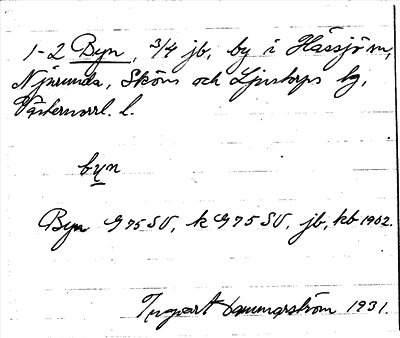 1-2 Byn, 3/4 jb, by i Hässjö sn,
Njurunda, Sköns och Ljustorps tg,
Västernorrl. l.
byn
Byn G 75 SV, k G 75 SV, jb, kb 1902.
Ingvart Hammarström 1931.